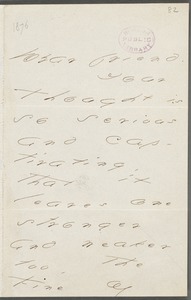 82
1876
PUBLIC
LIBRARY
Dear friend
Your
thought is
so serious
and cap-
tivating
that it
leaves one
stronger
and weaker
too. The
Fine of